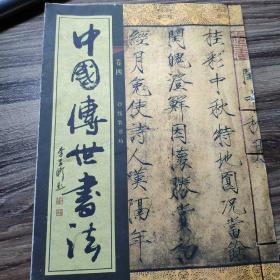 中國傳世書法
卷四
桂彩中秋特地圓況當餘
閏魄澄鮮因懷勝賞初
經月免使詩人嘆隔年